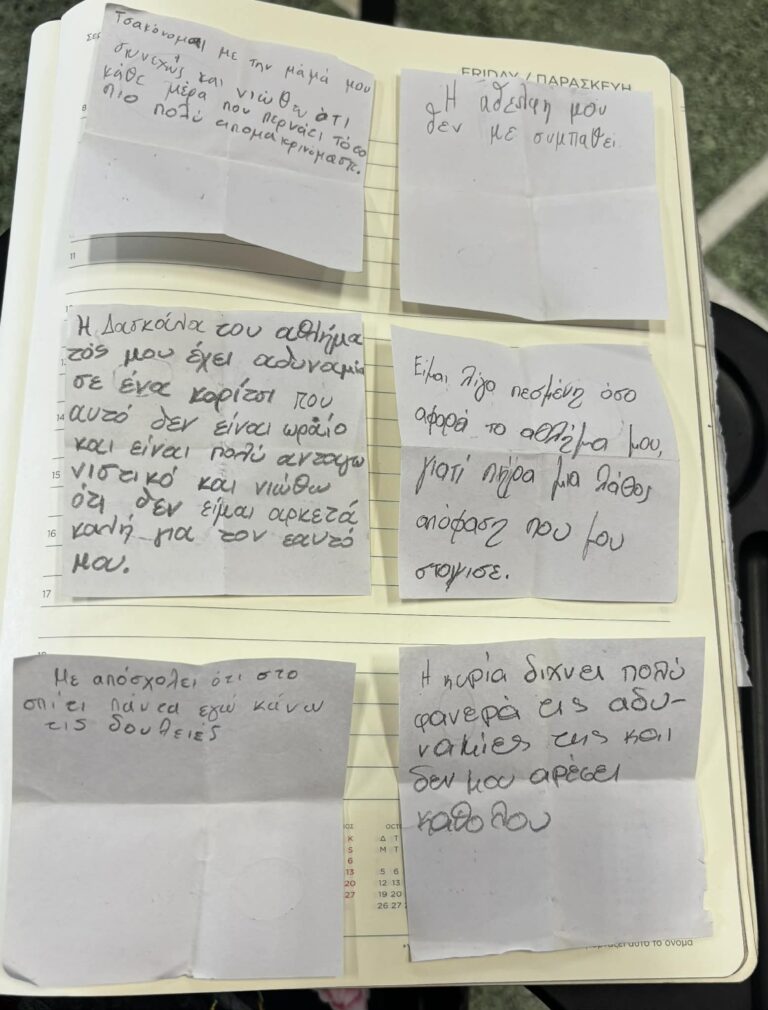 ΣΕΠ
FRIDAY / ΠΑΡΑΣΚΕΥΗ
Τσακόνομαι με την μαμά μου
συνεχώς και νιώθω ότι
κάθε μέρα που περνάει τόσο
πιο πολύ απομακρινόμαστε.
Η αδελφή μου
δεν με συμπαθεί
8
11
Η Δασκάλα του αθλήμα
τός μου έχει αδυναμία
σε ένα κορίτσι που
αυτό δεν είναι ωραίο
και είναι πολύ ανταγω
νιστικό και νιώθω
ότι δεν είμαι αρκετά
καλή για τον εαυτό
μου.
14
15
16
17
Είμαι λίγο πεσμένη όσο
αφορά το αθλήμα μου,
γιατί πήρα μια λάθος
απόφαση που μου
στοίχισε.
Με απόσχολει ότι στο
σπίτι πάντα εγώ κάνω
τις δουλειές
Η κυρία διχνει πολύ
φανερά τις αδυ-
ναμίες της και
δεν μου αρέσει
καθολου
ΟΣ
Κ
S
6
13
20
27
ΟΚΤ
Δ Τ
M T
5 6
12 13
19 20
26 27
αυτό το όνομα